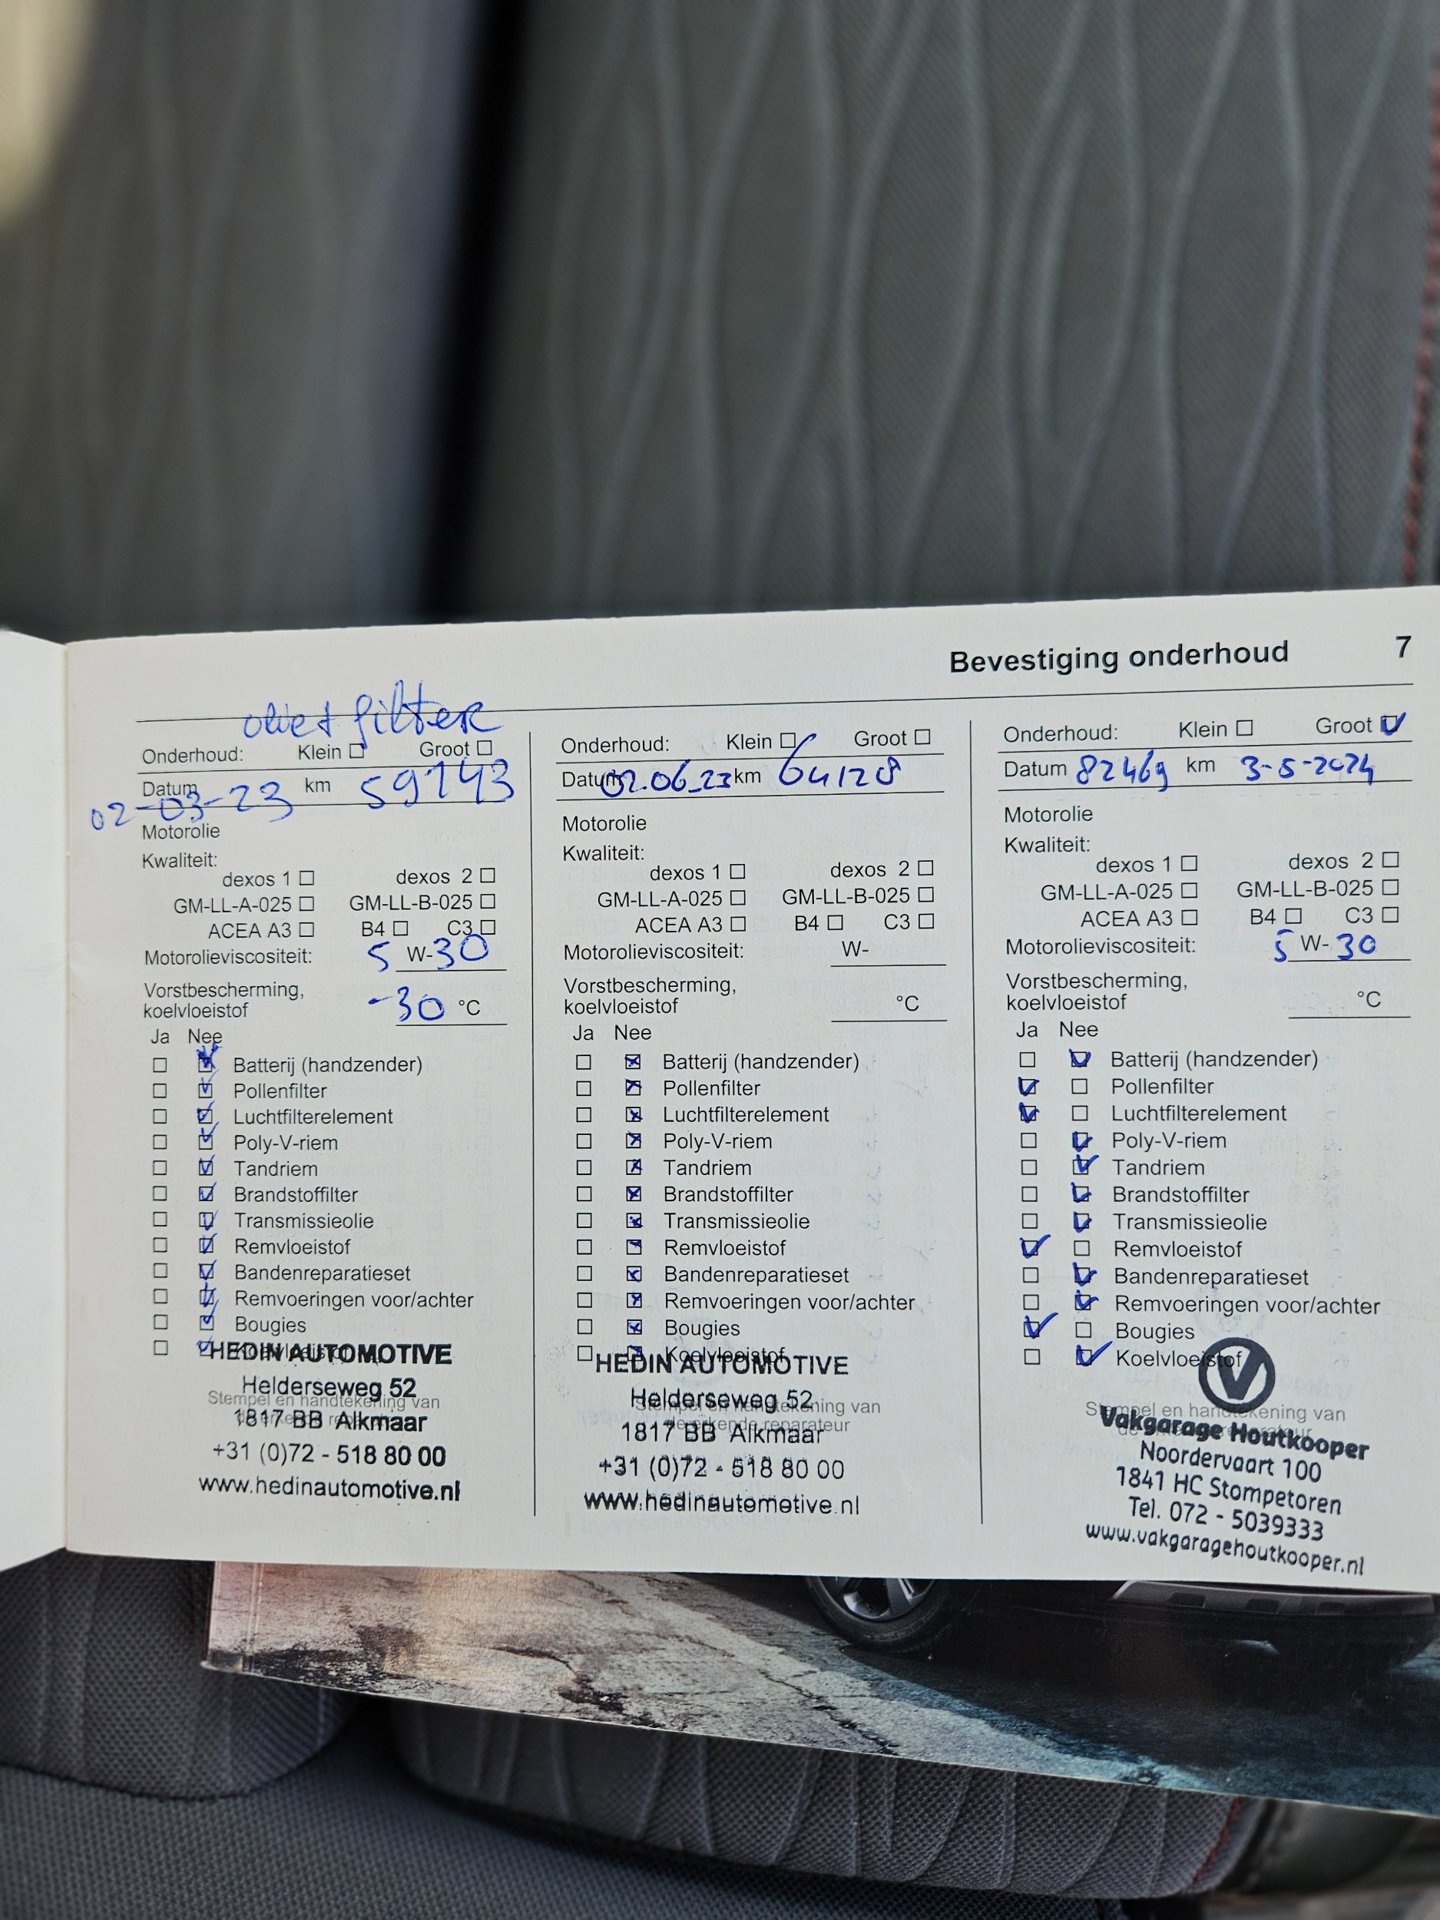 Bevestiging onderhoud 7
olie+filter
Onderhoud: Klein ☐ Groot ☐
Datum 02-03-23 km 59143
Motorolie
Kwaliteit:
dexos 1 ☐ dexos 2 ☐
GM-LL-A-025 ☐ GM-LL-B-025 ☐
ACEA A3 ☐ B4 ☐ C3 ☐
Motorolieviscositeit: 5 W-30
Vorstbescherming,
koelvloeistof -30 °C
Ja Nee
☐ ☑ Batterij (handzender)
☐ ☑ Pollenfilter
☐ ☑ Luchtfilterelement
☐ ☑ Poly-V-riem
☐ ☑ Tandriem
☐ ☑ Brandstoffilter
☐ ☑ Transmissieolie
☐ ☑ Remvloeistof
☐ ☑ Bandenreparatieset
☐ ☑ Remvoeringen voor/achter
☐ ☑ Bougies
☐ ☑ Koelvloeistof
HEDIN AUTOMOTIVE
Helderseweg 52
Stempel en handtekening van
1817 BB Alkmaar
de erkende reparateur
+31 (0)72 - 518 80 00
www.hedinautomotive.nl
Onderhoud: Klein ☐ Groot ☐
Datum 02.06.23 km 64128
Motorolie
Kwaliteit:
dexos 1 ☐ dexos 2 ☐
GM-LL-A-025 ☐ GM-LL-B-025 ☐
ACEA A3 ☐ B4 ☐ C3 ☐
Motorolieviscositeit: W-
Vorstbescherming,
koelvloeistof °C
Ja Nee
☐ ☒ Batterij (handzender)
☐ ☒ Pollenfilter
☐ ☒ Luchtfilterelement
☐ ☒ Poly-V-riem
☐ ☒ Tandriem
☐ ☒ Brandstoffilter
☐ ☒ Transmissieolie
☐ ☒ Remvloeistof
☐ ☒ Bandenreparatieset
☐ ☒ Remvoeringen voor/achter
☐ ☒ Bougies
☐ ☒ Koelvloeistof
HEDIN AUTOMOTIVE
Helderseweg 52
Stempel en handtekening van
1817 BB Alkmaar
de erkende reparateur
+31 (0)72 - 518 80 00
www.hedinautomotive.nl
Onderhoud: Klein ☐ Groot ☑
Datum 82469 km 3-5-2024
Motorolie
Kwaliteit:
dexos 1 ☐ dexos 2 ☐
GM-LL-A-025 ☐ GM-LL-B-025 ☐
ACEA A3 ☐ B4 ☐ C3 ☐
Motorolieviscositeit: 5 W-30
Vorstbescherming,
koelvloeistof °C
Ja Nee
☐ ☑ Batterij (handzender)
☑ ☐ Pollenfilter
☑ ☐ Luchtfilterelement
☐ ☑ Poly-V-riem
☐ ☑ Tandriem
☐ ☑ Brandstoffilter
☐ ☑ Transmissieolie
☑ ☐ Remvloeistof
☐ ☑ Bandenreparatieset
☐ ☑ Remvoeringen voor/achter
☑ ☐ Bougies
☐ ☑ Koelvloeistof
Stempel en handtekening van
de erkende reparateur
Vakgarage Houtkooper
Noordervaart 100
1841 HC Stompetoren
Tel. 072 - 5039333
www.vakgaragehoutkooper.nl